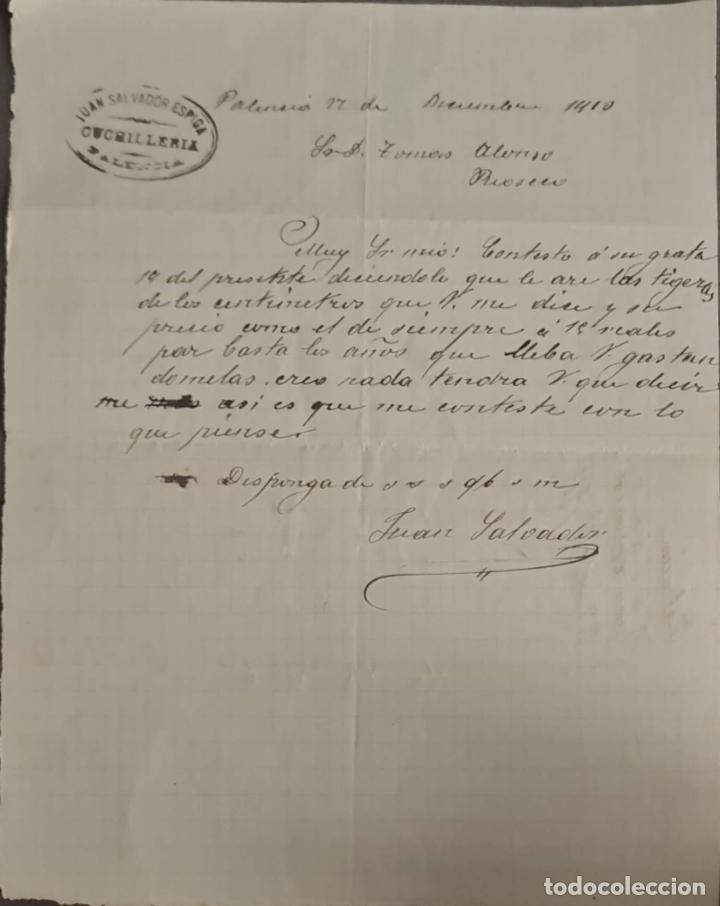 JUAN SALVADOR ESPIGA
CUCHILLERIA
PALENCIA
Palencia 17 de Diciembre 1910
Sr D. Tomas Alonso
Rioseco
Muy Sr mio: Contesto á su grata
del presente deciendole que le are las tigeras
de los centimetros que V. me dice y su
precio como el de siempre á reales
par basta los años que lleba V. gastan
domelas. creo nada tendra V. que decir
me asi es que me conteste con lo
que piense.
Disponga de s s s q b s m
Juan Salvador
todocoleccion
todocoleccion.net